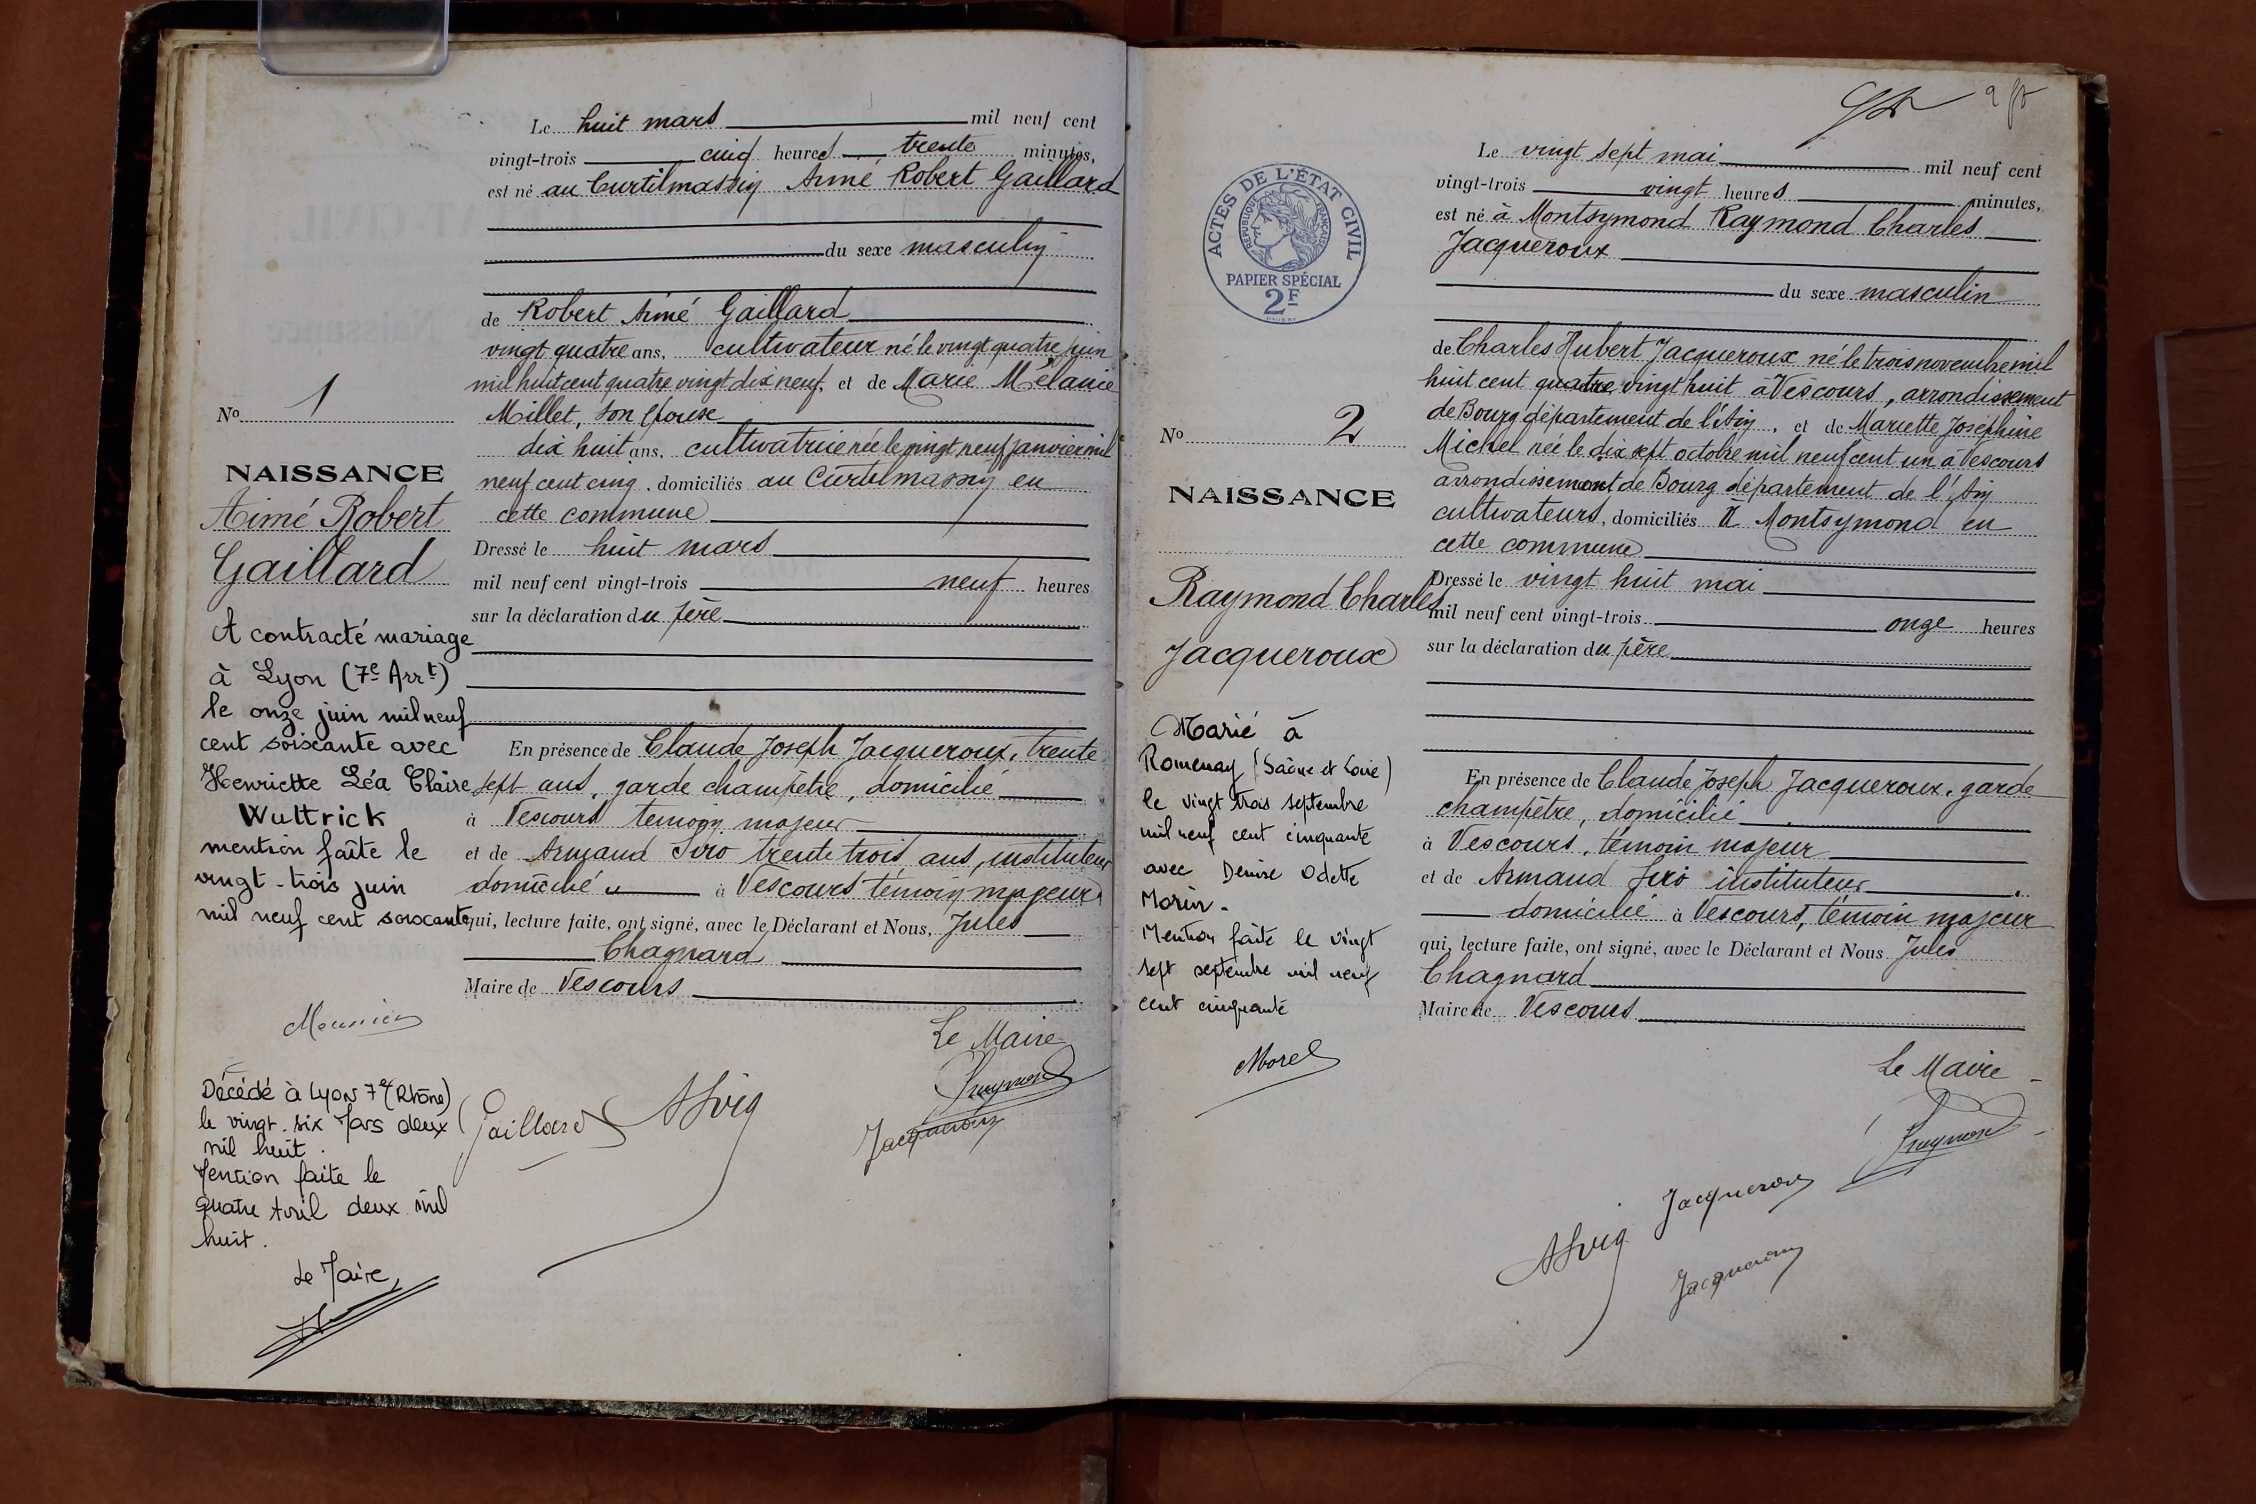 Le huit mars mil neuf cent
vingt-trois cinq heures trente minutes,
est né au Curtilmassiy Aimé Robert Gaillard
du sexe masculin
de Robert Aimé Gaillard
vingt quatre ans, cultivateur né le vingt quatre juin
mil huit cent quatre vingt dix neuf, et de Marie Mélanie
Millet, son épouse
dix huit ans, cultivatrice née le vingt neuf janvier mil
neuf cent cinq, domiciliés au Curtilmassiy en
cette commune
Dressé le huit mars
mil neuf cent vingt-trois neuf heures
sur la déclaration du père
En présence de Claude Joseph Jacqueroux, trente
sept ans, garde champêtre, domicilié
à Vescours témoin majeur
et de Armand trente trois ans, instituteur
domicilié à Vescours témoin majeur
qui, lecture faite, ont signé, avec le Déclarant et Nous, Jules
Chagnard
Maire de Vescours
Le Maire
Gaillard
Jacqueroux
No 1
NAISSANCE
Aimé Robert
Gaillard
A contracté mariage
à Lyon (7e Arrt)
le onze juin mil neuf
cent soixante avec
Henriette Léa Claire
Wuttrick
mention faite le
vingt-trois juin
mil neuf cent soixante
Meunier
Décédé à Lyon 7e (Rhône)
le vingt-six Mars deux
mil huit.
Mention faite le
quatre Avril deux mil
huit.
Le Maire,
2
ACTES DE L'ÉTAT CIVIL
RÉPUBLIQUE FRANÇAISE
PAPIER SPÉCIAL
2F
Le vingt sept mai mil neuf cent
vingt-trois vingt heures minutes,
est né à Montsymond Raymond Charles
Jacqueroux
du sexe masculin
de Charles Hubert Jacqueroux né le trois novembre mil
huit cent quatre vingt huit à Vescours, arrondissement
de Bourg département de l'Ain, et de Mariette Joséphine
Michel née le dix sept octobre mil neuf cent un à Vescours
arrondissement de Bourg département de l'Ain
cultivateurs, domiciliés à Montsymond en
cette commune
Dressé le vingt huit mai
mil neuf cent vingt-trois onze heures
sur la déclaration du père
En présence de Claude Joseph Jacqueroux, garde
champêtre, domicilié
à Vescours, témoin majeur
et de Armand instituteur
domicilié à Vescours, témoin majeur
qui, lecture faite, ont signé, avec le Déclarant et Nous Jules
Chagnard
Maire de Vescours
Le Maire
Jacqueroux
Jacqueroux
No 2
NAISSANCE
Raymond Charles
Jacqueroux
Marié à
Romenay (Saône et Loire)
le vingt trois septembre
mil neuf cent cinquante
avec Denise Odette
Morin.
Mention faite le vingt
sept septembre mil neuf
cent cinquante
Morel